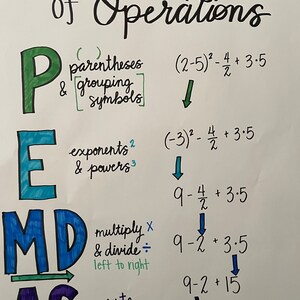 of Operations
P
parentheses ( )
& [grouping
symbols]
(2-5)² - 4/2 + 3·5
E
exponents²
& powers³
(-3)² - 4/2 + 3·5
9 - 4/2 + 3·5
MD
multiply x
& divide ÷
left to right
9 - 2 + 3·5
9-2 + 15